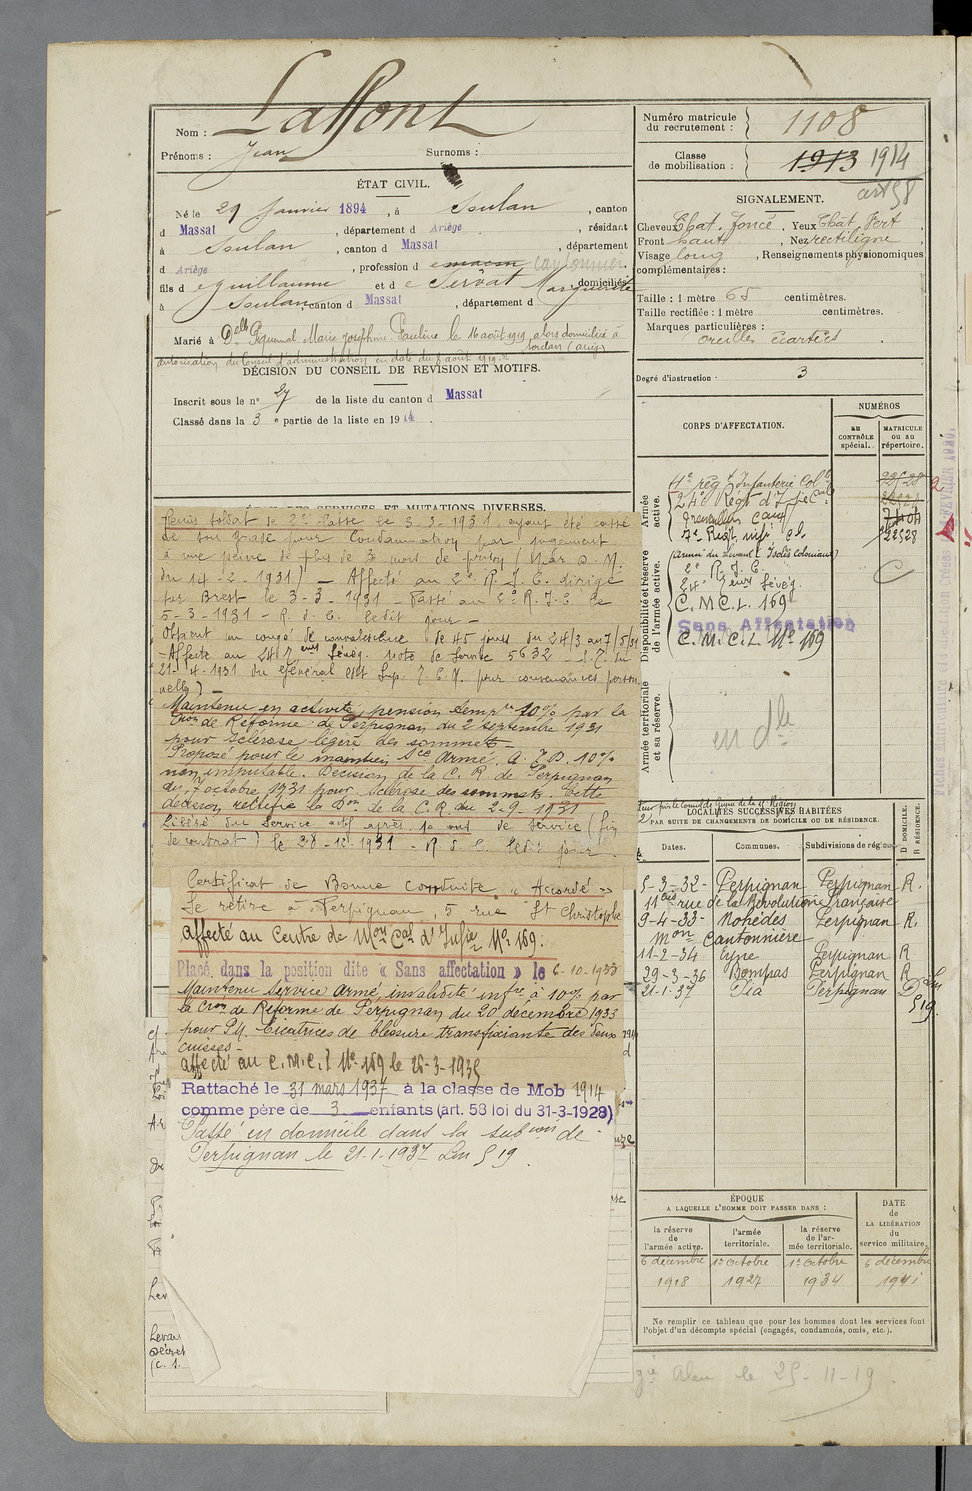 Nom : Laffont
Prénoms : Jean Surnoms :
ÉTAT CIVIL.
Né le 29 Janvier 1894, à Soulan, canton
d Massat, département d Ariège, résidant
à Soulan, canton d Massat, département
d Ariège, profession d e maçon cantonnier
fils d e Guillaume et d e Servat Marguerite domiciliés
à Soulan, canton d Massat, département d
Marié à Delle Piquemal Marie Joséphine Pauline le 16 août 1919, alors domiciliée à
Soulan (Ariège)
autorisation du Conseil d'administration en date du 8 août 1919.
DÉCISION DU CONSEIL DE REVISION ET MOTIFS.
Inscrit sous le n° 27 de la liste du canton d Massat
Classé dans la 3 e partie de la liste en 1914.
DÉTAIL DES SERVICES ET MUTATIONS DIVERSES.
Remis soldat de 2e classe le 3-3-1931, ayant été cassé
de son grade pour Condamnation par jugement
à une peine de plus de 3 mois de prison
du 14-2-1931) — Affecté au 2e R.I.C. dirigé
sur Brest le 3-3-1931 — Passé au 2e R.I.C. le
5-3-1931 — R.d.C. ledit jour —
Obtient un congé de convalescence de 45 jours du 24/3 au 7/5/31
— Affecté au 24e Tirailleurs Sénég. note de service 5632 — du
21-4-1931 du Général Cdt Sup. T.C.M. pour convenances person
nelles) —
Maintenu en activité, pension tempre 10% par la
Cion de Réforme de Perpignan du 2 septembre 1931
pour sclérose légère des sommets —
Proposé pour le maintien Sce Armé. A.I.D. 10%
non imputable. Décision de la C.R de Perpignan
du 7 octobre 1931 pour sclérose des sommets. Cette
décision rectifie la Don de la C.R. du 2-9-1931
Libéré du Service actif après 10 ans de service (fin
de contrat) le 28-12-1931 - R d C. ledit jour.
Certificat de Bonne Conduite « Accordé »
Se retire à Perpignan, 5 rue St Christophe
Affecté au Centre de Mon Cal d'Infie No 169.
Placé dans la position dite « Sans affectation » le 6-10-1933
Maintenu Service Armé, invalidité infre à 10% par
la Cion de Réforme de Perpignan du 20 décembre 1933
pour P.M. Cicatrices de blessure transfixiante des deux
cuisses —
affecté au C.M.C.I No 169 le 26-3-1935
Rattaché le 31 mars 1937 à la classe de Mob 1914
comme père de 3 enfants (art. 58 loi du 31-3-1928)
Passé en domicile dans la subion de
Perpignan le 21-1-1937 Lm § 19.
Numéro matricule
du recrutement : 1108
Classe
de mobilisation : 1913 1914
art 58
SIGNALEMENT.
Cheveux Chat. foncé, Yeux Chat. Vert
Front haut, Nez rectiligne
Visage long, Renseignements physionomiques
complémentaires :
Taille : 1 mètre 65 centimètres.
Taille rectifiée : 1 mètre centimètres.
Marques particulières :
oreilles écartées.
Degré d'instruction : 3
CORPS D'AFFECTATION.
NUMÉROS
au
CONTRÔLE
spécial.
MATRICULE
ou au
répertoire.
Armée
active.
4e régt Infanterie Colle
24e Régt d'Ie Cale
7e Régt infie Cle 22528
(Armée du Levant Isolés Coloniaux)
Disponibilité et réserve
de l'armée active.
2e R.I.C.
24e Teurs Sénég.
C.M.C.I. 169
Sans Affectation
C.M.C.I. No 169
Armée territoriale
et sa réserve.
en dle
LOCALITÉS SUCCESSIVES HABITÉES
PAR SUITE DE CHANGEMENTS DE DOMICILE OU DE RÉSIDENCE.
Dates. Communes. Subdivisions de région. D DOMICILE. R RÉSIDENCE.
5-3-32- Perpignan Perpignan R.
11 bis rue de la Révolution française
9-4-33- Nohèdes Perpignan R.
Mon Cantonnière
11-2-34 Eyne Perpignan R
29-3-36 Bompas Perpignan R
21-1-37 Via Perpignan D Lm
§ 19
ÉPOQUE
A LAQUELLE L'HOMME DOIT PASSER DANS :
DATE
de
LA LIBÉRATION
du
service militaire.
la réserve
de
l'armée active.
l'armée
territoriale.
la réserve
de l'ar-
mée territoriale.
6 décembre 1er Octobre 1er Octobre 6 décembre
1918 1927 1934 1941
Ne remplir ce tableau que pour les hommes dont les services font
l'objet d'un décompte spécial (engagés, condamnés, omis, etc.).
Aleu le 25-11-19.